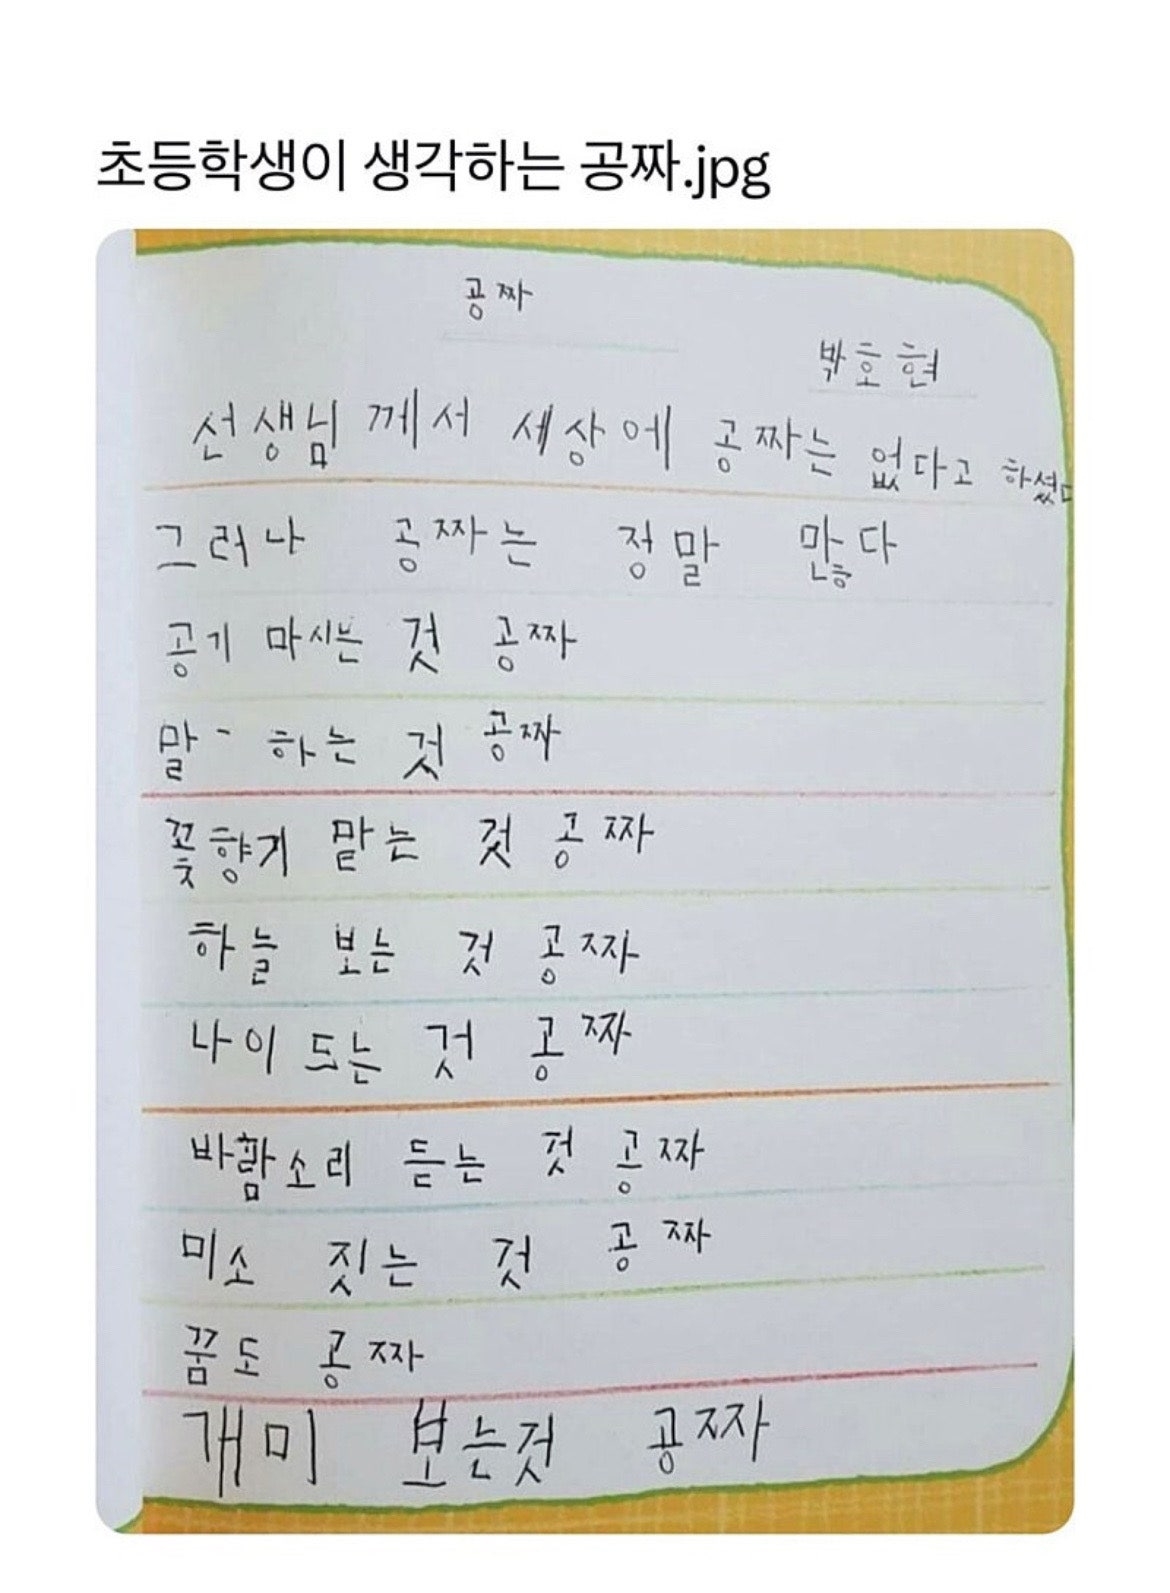 초등학생이 생각하는 공짜.jpg
공짜
박호현
선생님 께서 세상에 공짜는 없다고 하셨다
그러나 공짜는 정말 많다
공기 마시는 것 공짜
말 - 하는 것 공짜
꽃향기 맡는 것 공짜
하늘 보는 것 공짜
나이 드는 것 공짜
바람소리 듣는 것 공짜
미소 짓는 것 공짜
꿈도 공짜
개미 보는것 공짜